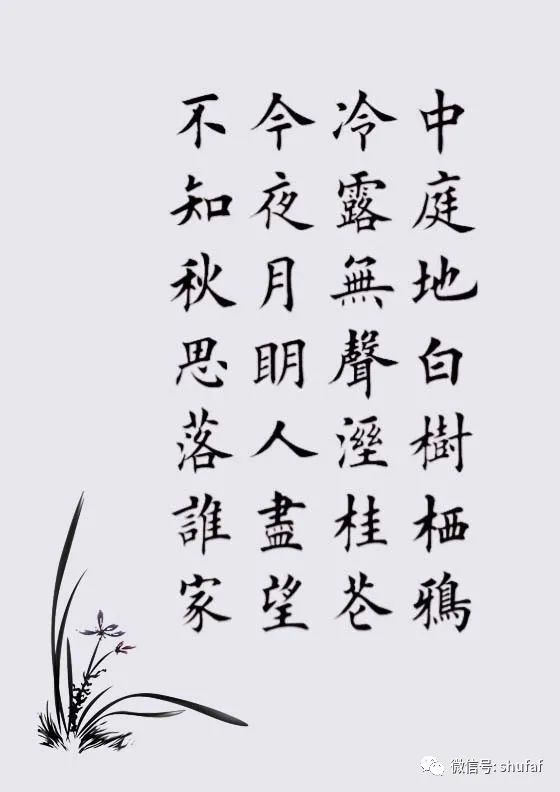 中庭地白樹栖鴉
冷露無聲溼桂花
今夜月明人盡望
不知秋思落誰家
微信号: shufaf